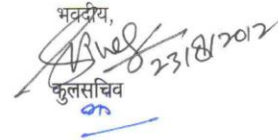 भवदीय,
23/8/2012
कुलसचिव